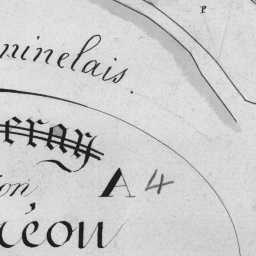 P
minelais.
eray
ion
A 4
céou